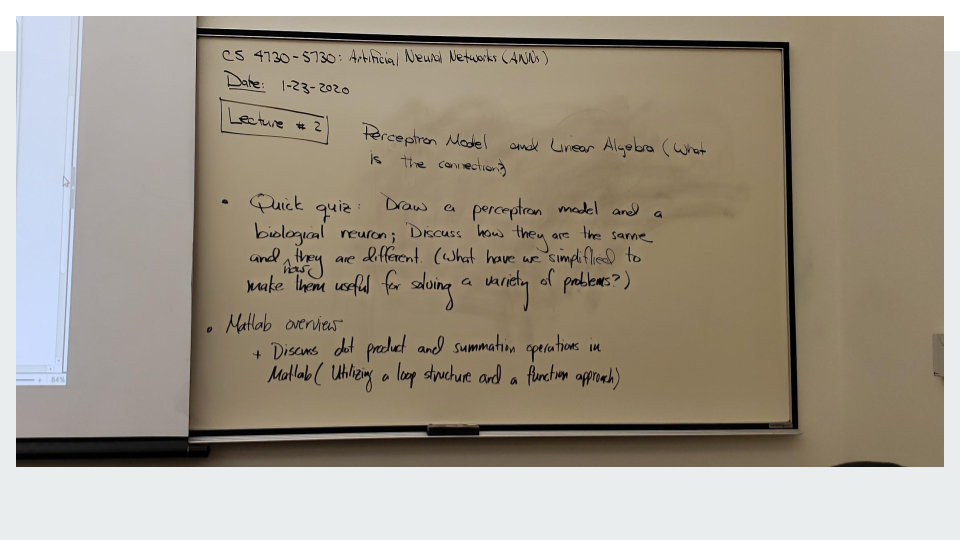 CS 4730-5730: Artificial Neural Networks (ANNs)
Date: 1-23-2020
Lecture # 2
Perceptron Model and Linear Algebra (What
is the connection?)
• Quick quiz: Draw a perceptron model and a
biological neuron; Discuss how they are the same
and how they are different. (What have we simplified to
make them useful for solving a variety of problems?)
• Matlab overview
+ Discuss dot product and summation operations in
Matlab ( Utilizing a loop structure and a function approach)
84%